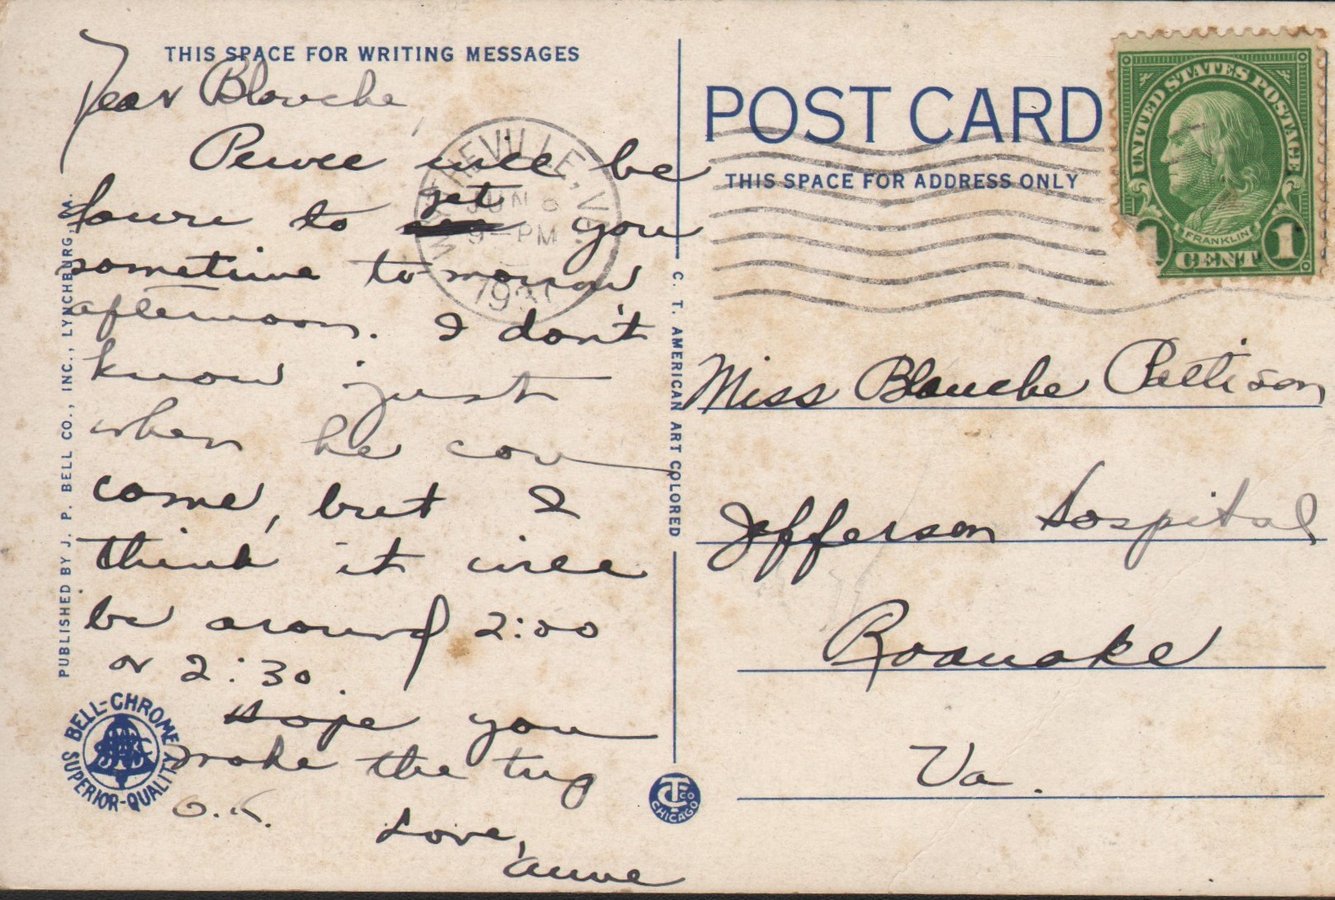 THIS SPACE FOR WRITING MESSAGES
Dear Blanche,
Pewee will be
down to get you
sometime tomorrow
afternoon. I don't
know just
when he can
come, but I
think it will
be around 2:00
or 2:30.
Hope you
make the trip
O.K.
Love,
Anne
PUBLISHED BY J. P. BELL CO., INC., LYNCHBURG, VA.
BELL-CHROME
SUPERIOR-QUALITY
WYTHEVILLE, VA.
JUN 6
9-PM
C. T. AMERICAN ART COLORED
CT CO
CHICAGO
POST CARD
THIS SPACE FOR ADDRESS ONLY
UNITED STATES POSTAGE
FRANKLIN
1
CENT
1
Miss Blanche Pattison
Jefferson Hospital
Roanoke
Va.